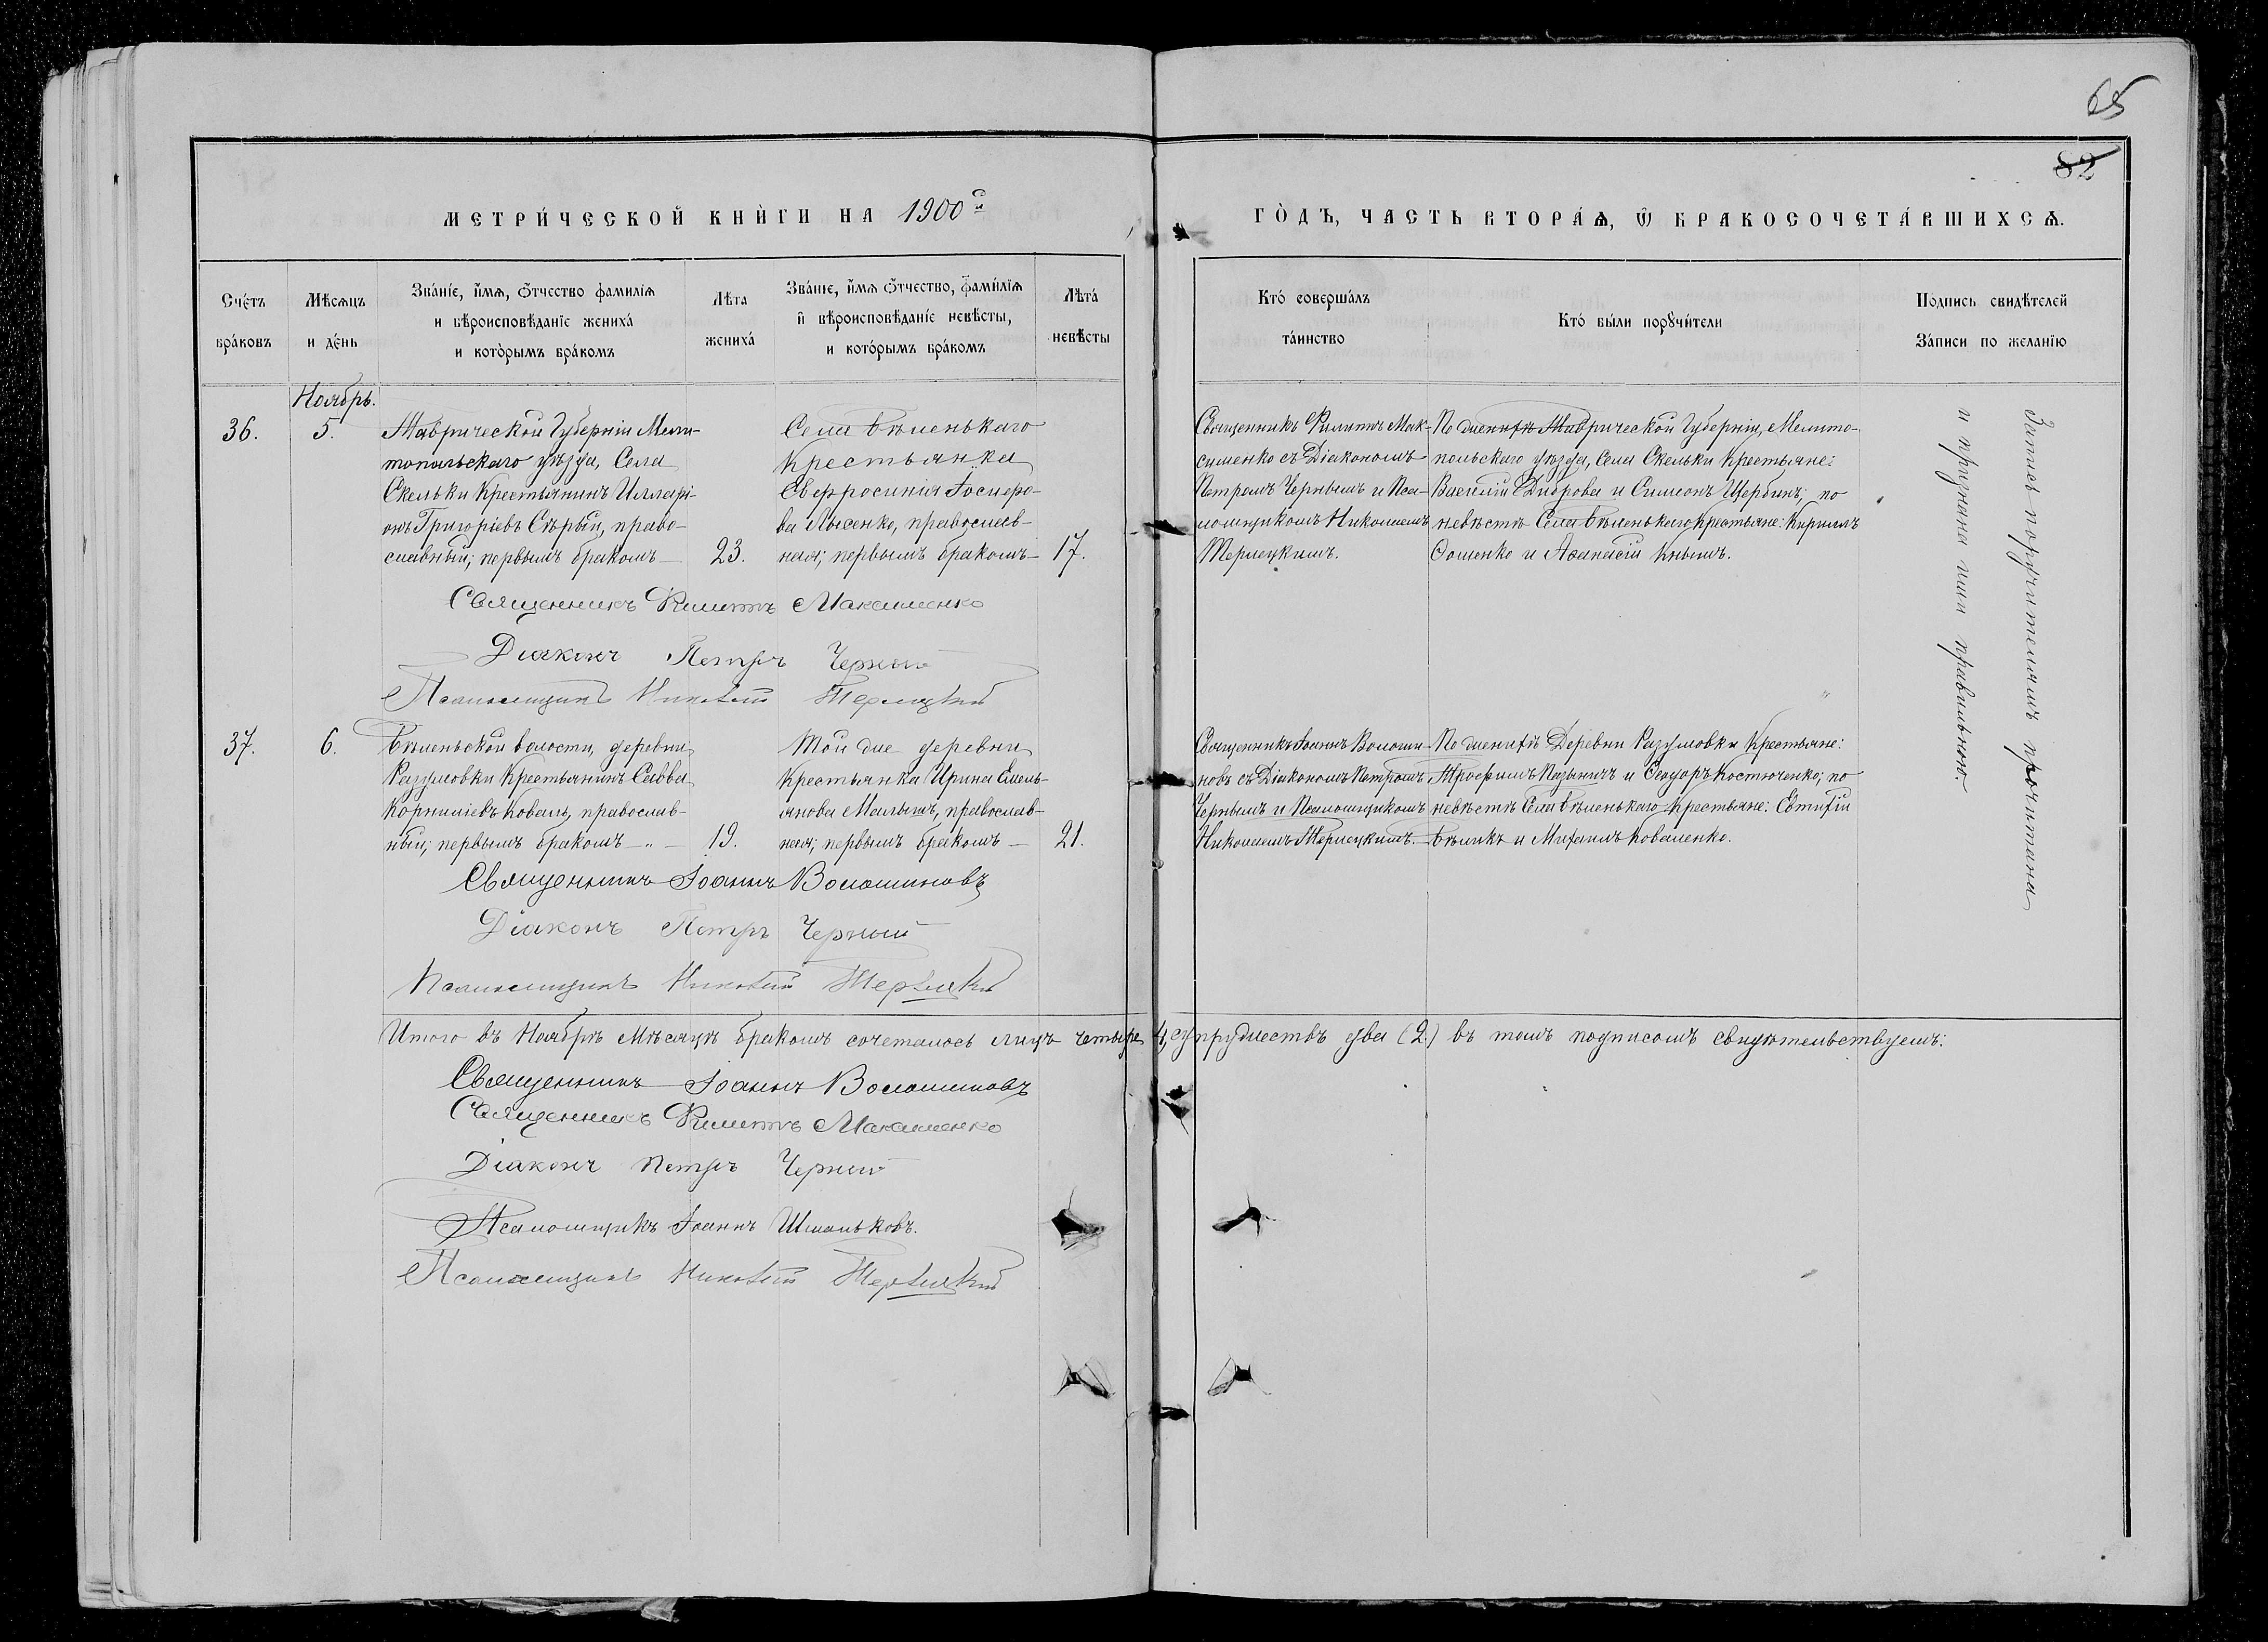 65
82
МЕТРИ́ЧЕСКОЙ КНЍГИ НА 1900й
ГО̀ДЪ, ЧАСТЬ ВТОРА́Ѧ, Ѿ БРАКОСОЧЕТА́ВШИХСѦ.
Сче́тъ
бра́ковъ
Мѣсяцъ
и де́нь
Зва́нїе, и҆́мѧ, ѻ҆́тчество фамилїѧ
и вѣроисповѣданїе жениха́
и кото̀рымъ бра́комъ
Лѣта
жениха́
Зва́нїе, и҆́мѧ ѻ҆́тчество, фами́лїѧ
и҆ вѣроисповѣда́нїе невѣ́сты,
и кото́рымъ бра́комъ
Лѣта́
невѣсты
Кто́ соверша́лъ
та́инство
Кто́ бы́ли порꙋчи́тели
Подпись свидѣ́телей
За́писи по жела́нїю
Ноябрь.
36.
5.
Таврической Губерніи Мели-
топольскаго уѣзда, Села
Скельки Крестьянинъ Илларі-
онъ Григоріевъ Сѣрый, право-
славный; первымъ бракомъ —
23.
Села Бѣленькаго
Крестьянка
Евфросинія Іосифо-
ва Лысенко, православ-
ная; первымъ бракомъ —
17.
Священникъ Филиппъ Мак-
сименко съ Діакономъ
Петромъ Чернымъ и Пса-
ломщикомъ Николаемъ
Терлецкимъ.
По женихѣ Таврической Губерніи, Мелито-
польскаго уѣзда, Села Скельки Крестьяне:
Василій Диброва и Симеонъ Щербинъ; по
невѣстѣ Села Бѣленькаго Крестьяне: Кириллъ
Сошенко и Аѳанасій Кнышъ.
Запись поручителямъ прочитана
и признана ими правильною.
Священникъ Филиппъ Максименко
Діаконъ Петръ Черный
Псаломщикъ Николай Терлецкій
37.
6.
Бѣленьской волости, деревни
Разумовки Крестьянинъ Савва
Корниліевъ Коваль, православ-
ный; первымъ бракомъ — „ —
19.
Той же деревни
Крестьянка Ирина Емель-
янова Малышъ, православ-
ная; первымъ бракомъ —
21.
Священникъ Іоаннъ Волоши-
новъ съ Діакономъ Петромъ
Чернымъ и Псаломщикомъ
Николаемъ Терлецкимъ.
По женихѣ Деревни Разумовки Крестьяне:
Трофимъ и Ѳеодоръ Костюченко; по
невѣстѣ Села Бѣленькаго Крестьяне: Евтихій
Бѣликъ и Михаилъ Коваленко.
Священникъ Іоаннъ Волошиновъ
Діаконъ Петръ Черный
Псаломщикъ Николай Терлецкій
Итого въ Ноябрѣ Мѣсяцѣ бракомъ сочеталось лицъ четыре 4, супружествъ два (2) въ томъ подписомъ свидѣтельствуемъ:
Священникъ Іоаннъ Волошиновъ
Священникъ Филиппъ Максименко
Діаконъ Петръ Черный
Псаломщикъ Іоаннъ Шманьковъ.
Псаломщикъ Николай Терлецкій